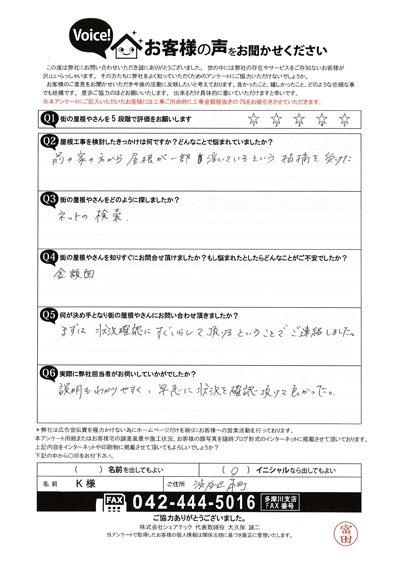 Voice!
お客様の声をお聞かせください
この度は弊社にお問い合わせいただき誠にありがとうございました。世の中には弊社の存在やサービスをご存知ないお客様が
沢山いらっしゃいます。その方たちに弊社をよく知っていただくためのアンケートにご協力いただけないでしょうか。
お客様のご意見をお聞かせいただき今後の活動に反映したいと考えております。良かったこと、嬉しかったこと、どのような些細な事
でも結構です。是非ご協力のほどお願いいたします。出来るだけ具体的に書いていただけますと幸いです。
※本アンケートにご記入いただいたお客様には工事ご用命時に工事金額税抜きの2%をお値引きさせていただきます。
Q1 街の屋根やさんを5段階で評価をお願いします ☆ ☆ ☆ ☆ ☆
Q2 屋根工事を検討したきっかけは何ですか？どんなことで悩まれていましたか？
前の家の方から屋根が一部浮いているという指摘を受けた
Q3 街の屋根やさんをどのように探しましたか？
ネットの検索．
Q4 街の屋根やさんを知りすぐにお問合せ頂けましたか？もし悩まれたとしたらどんなことがご不安でしたか？
金額面
Q5 何が決め手となり街の屋根やさんにお問い合わせ頂きましたか？
まずは状況確認にすぐ出して頂けるということでご連絡しました。
Q6 実際に弊社担当者がお伺いしていかがでしたか？
説明もわかりやすく、早急に状況を確認頂けて良かった。
※弊社は広告宣伝費を極力かけない為にホームページだけを頼りにお客様への営業活動を行っております。
本アンケート用紙またはお客様宅の調査風景や施工状況、お客様の顔写真を随時ブログ形式のインターネットに掲載させて頂いております。
上記内容をインターネットや印刷物に掲載させて頂いてもよろしいでしょうか？
下記の中から〇印をお付け下さい。
( ) 名前を出してもよい ( ○ ) イニシャルなら出してもよい
名前 K 様 ご住所 渋谷区本町
FAX 042-444-5016 多摩川支店 FAX 番号
ご協力ありがとうございました。
株式会社シェアテック 代表取締役 大久保 誠二
当アンケートで取得したお客様の個人情報は関係法令に基づき厳正に管理いたします。
富田